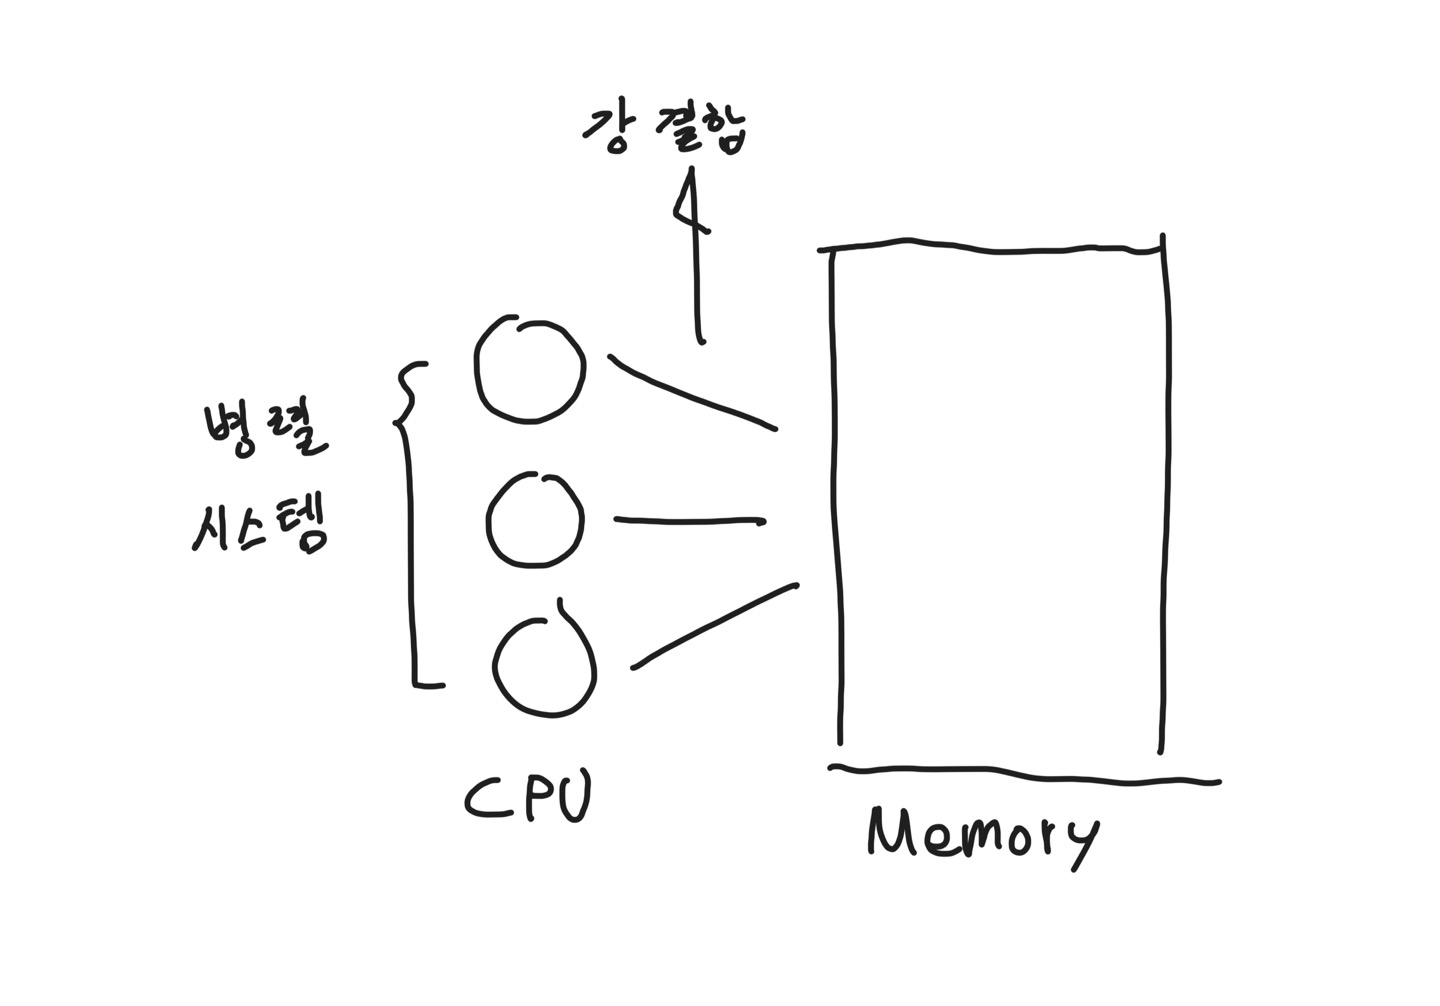 강 결합
병렬
시스템
CPU
Memory